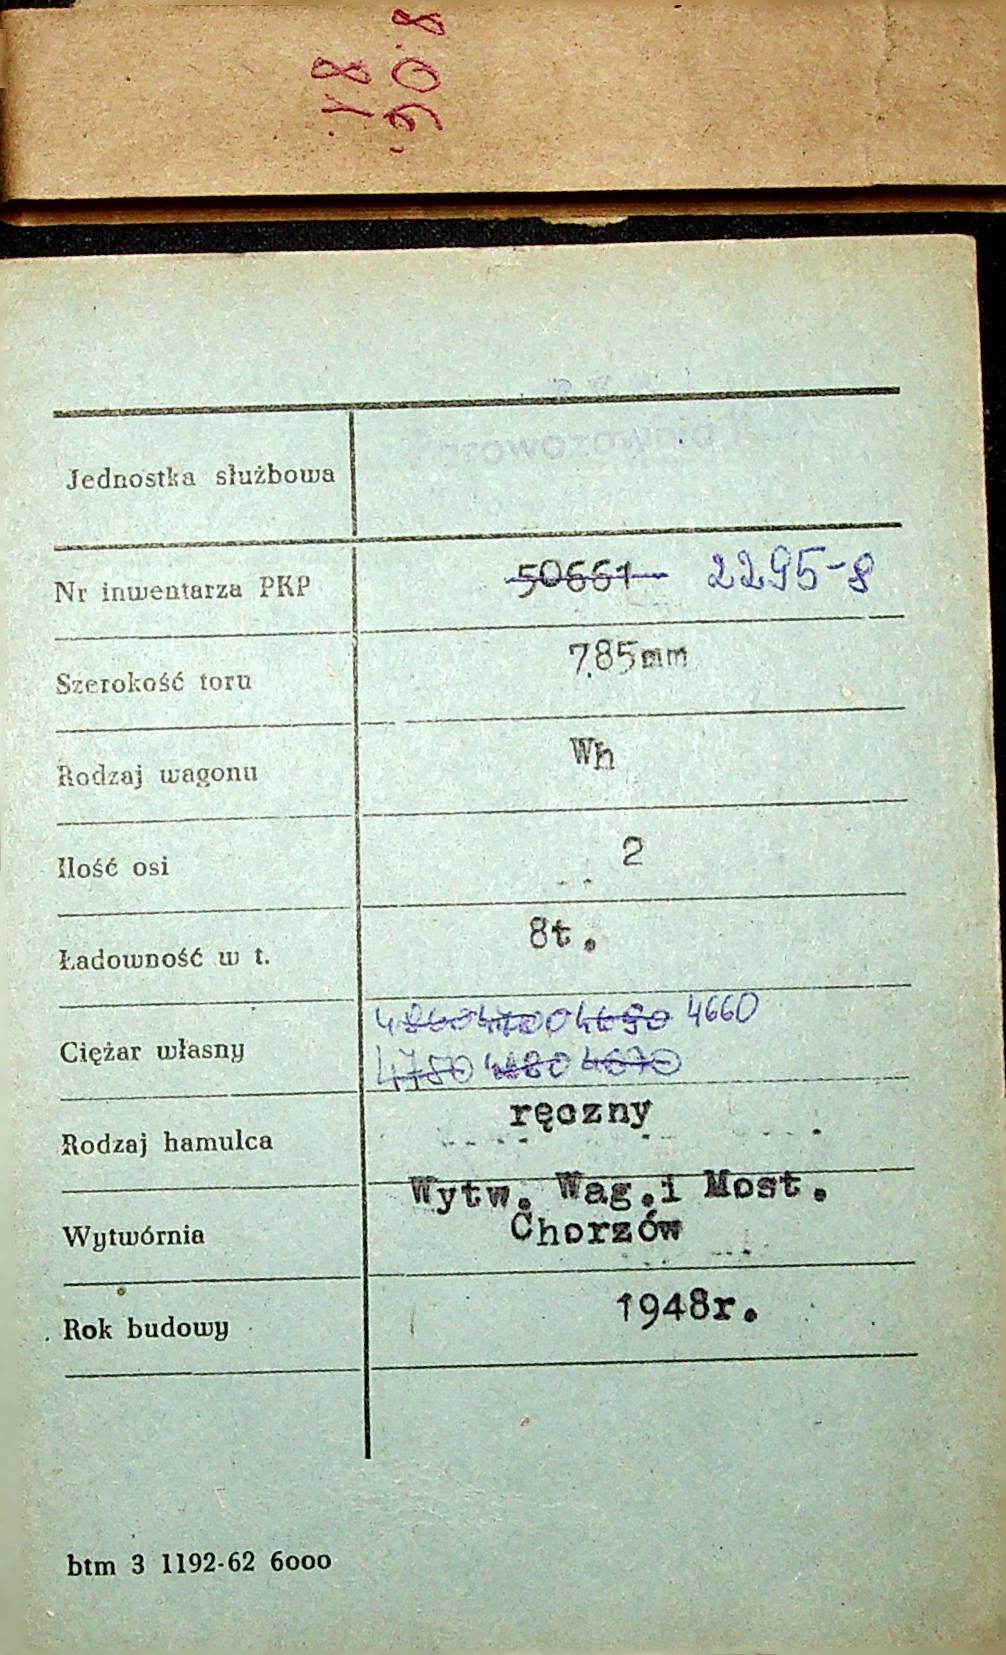 Jednostka służbowa Parowozownia
Nr inwentarza PKP 50661 2295-8
Szerokość toru 785mm
Rodzaj wagonu Wh
Ilość osi 2
Ładowność w t. 8t.
Ciężar własny 4690 4660
4750 4670
Rodzaj hamulca ręczny
Wytwórnia Wytw. Wag.i Most.
Chorzów
Rok budowy 1948r.
btm 3 1192-62 6000